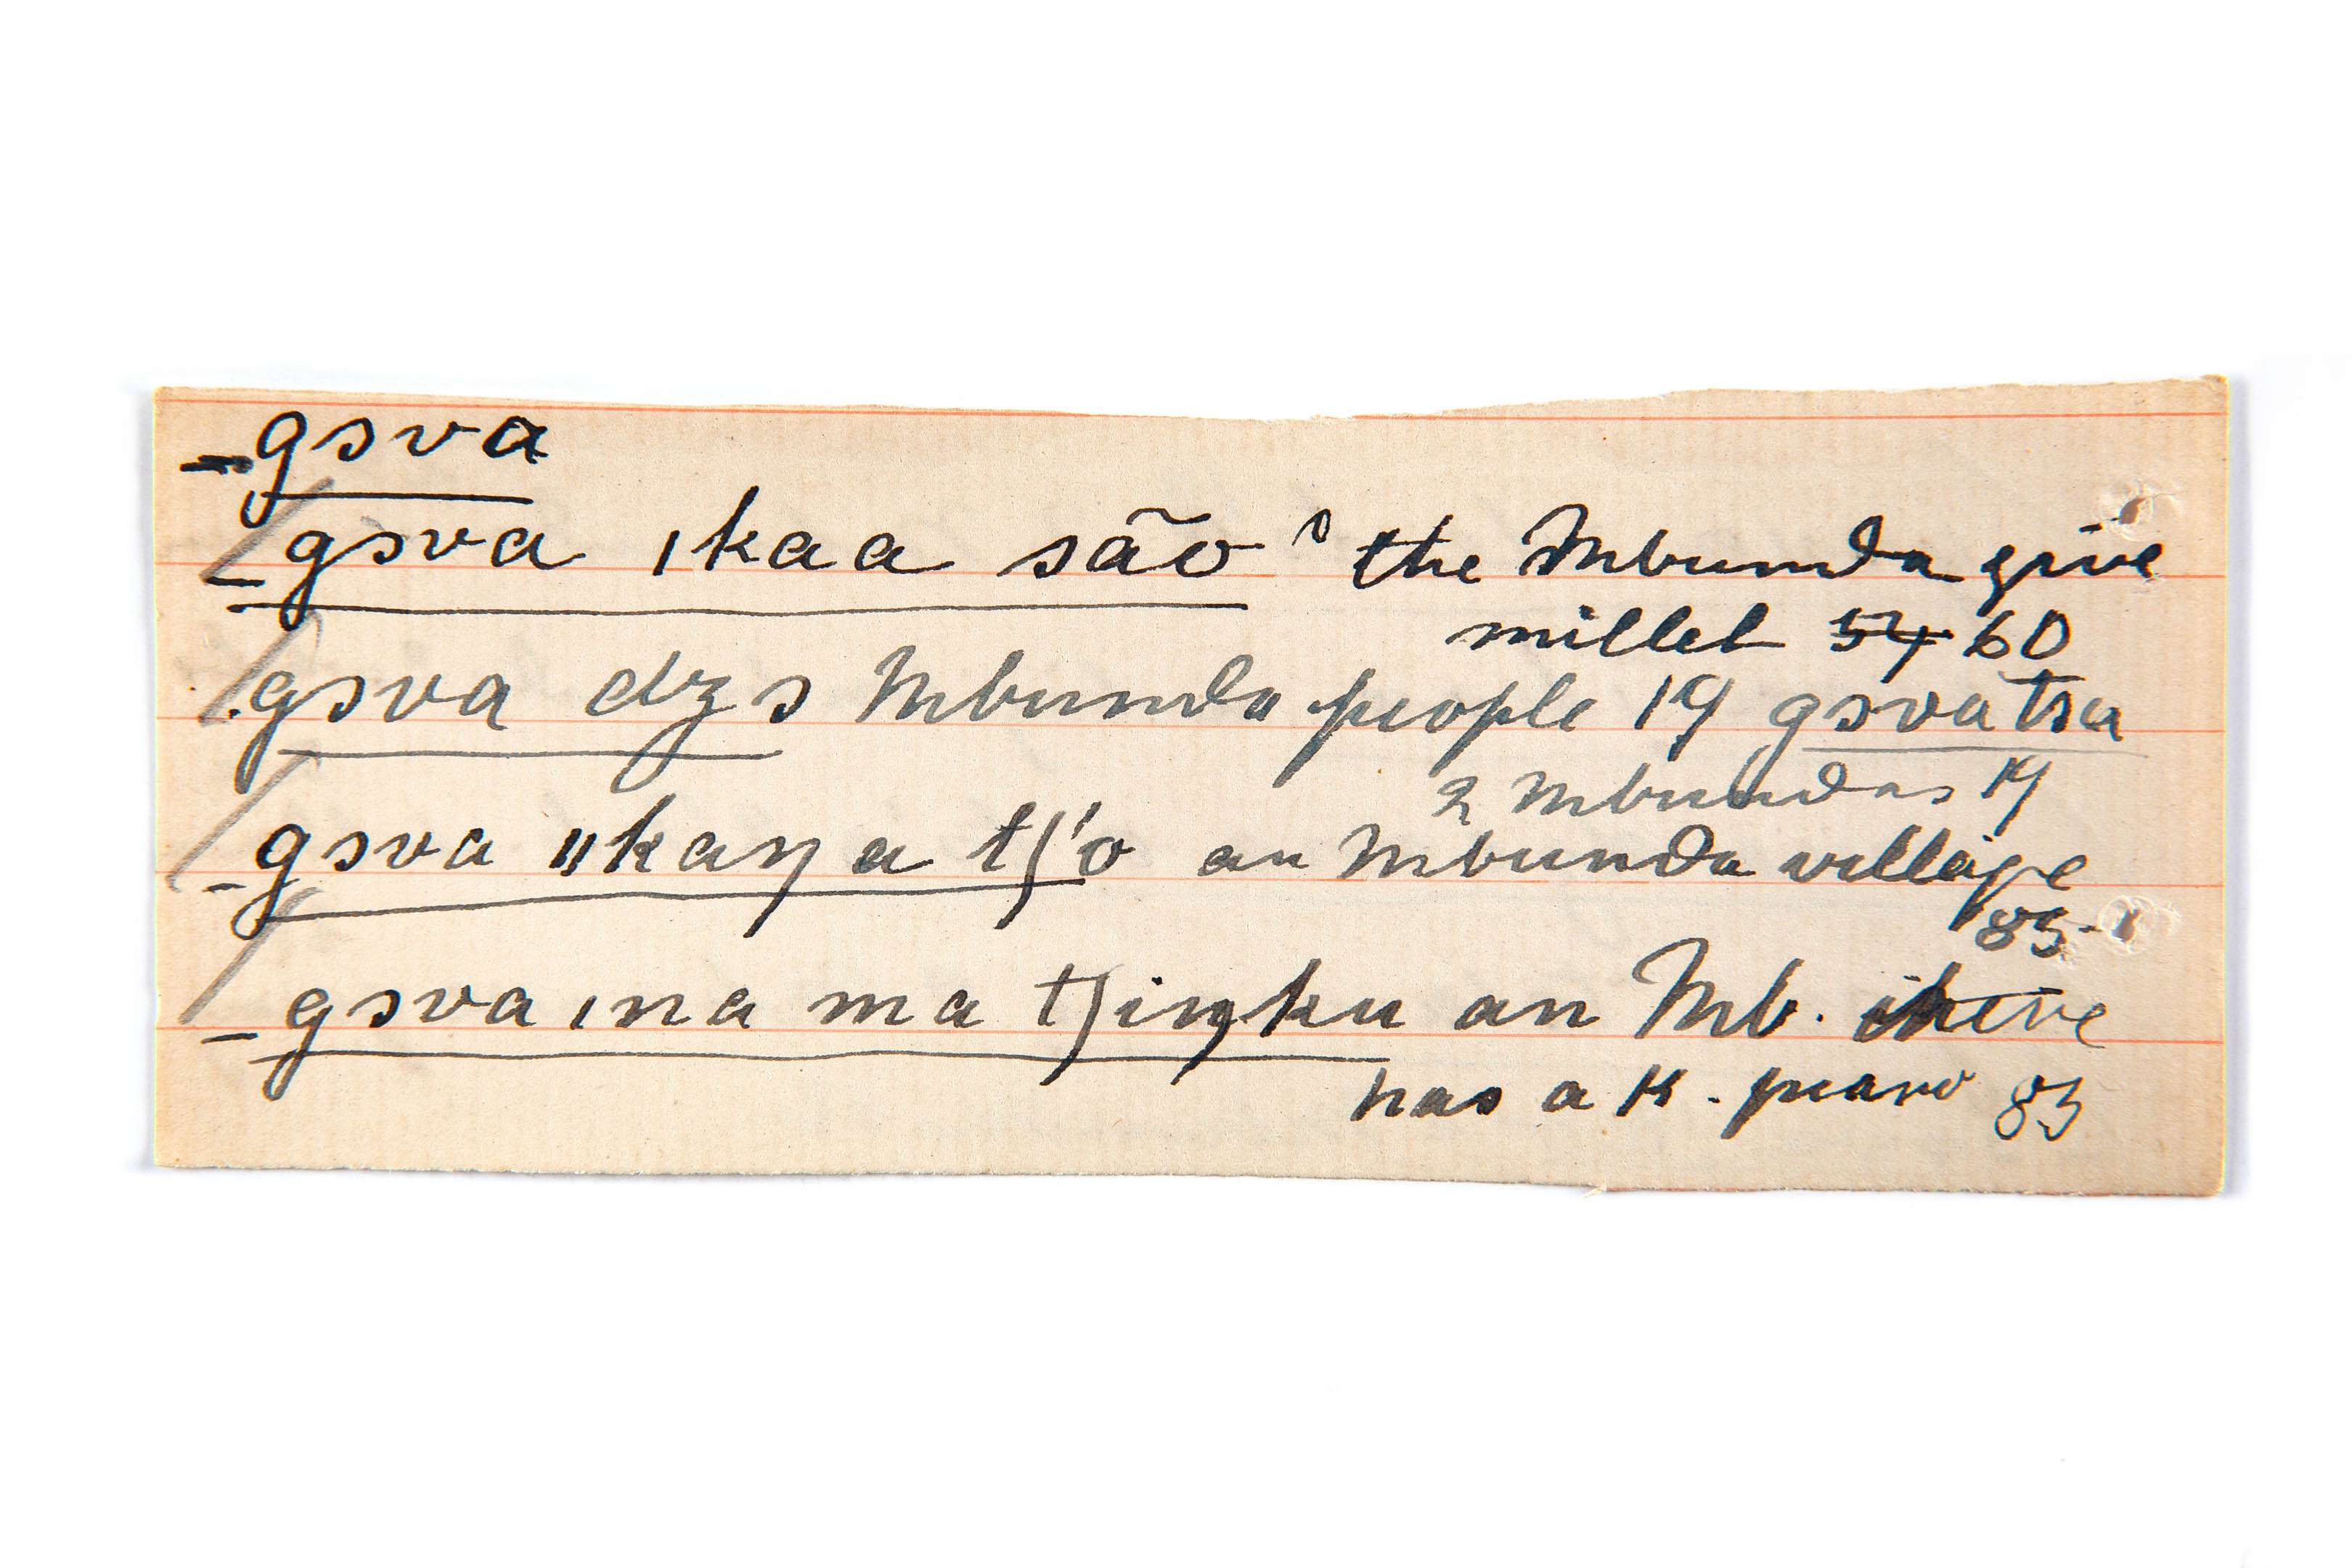 -gɔva
gɔva ıkaa sãO the Mbunda give
millet 54 60
gɔva dzɔ Mbunda people 19 gɔva tsa
2 Mbundas 19
gɔva ıı kaŋ a tʃ'o an Mbunda village
83
gɔva ına ma tʃiŋku an Mb. here
has a K. piano 83